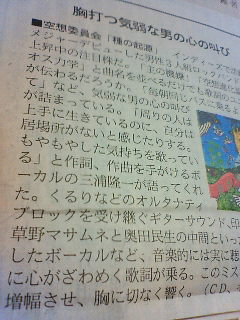 胸打つ気弱な男の心の叫び
■空想委員会「種の起源」
メジャーデビューした男性3人組ロックバンド
上昇中の注目株だ。「主の機嫌」
オス力学」と曲名を並べるだけでも歌詞の
が伝わるだろうか。「毎朝同じバスに乗る
て」など、気弱な男の心の叫び
が詰まっている。「周りの人は
上手に生きているのに、自分は
居場所がないと感じたりする。
もやもやした気持ちを歌ってい
る」と作詞、作曲を手がけるボ
ーカルの三浦隆一が語ってくれ
た。くるりなどのオルタナティ
ブロックを受け継ぐギターサウンド、印
草野マサムネと奥田民生の中間といっ
したボーカルなど、音楽的には実に聴
に心がざわめく歌詞が乗る。このミス
増幅させ、胸に切なく響く。(CD、